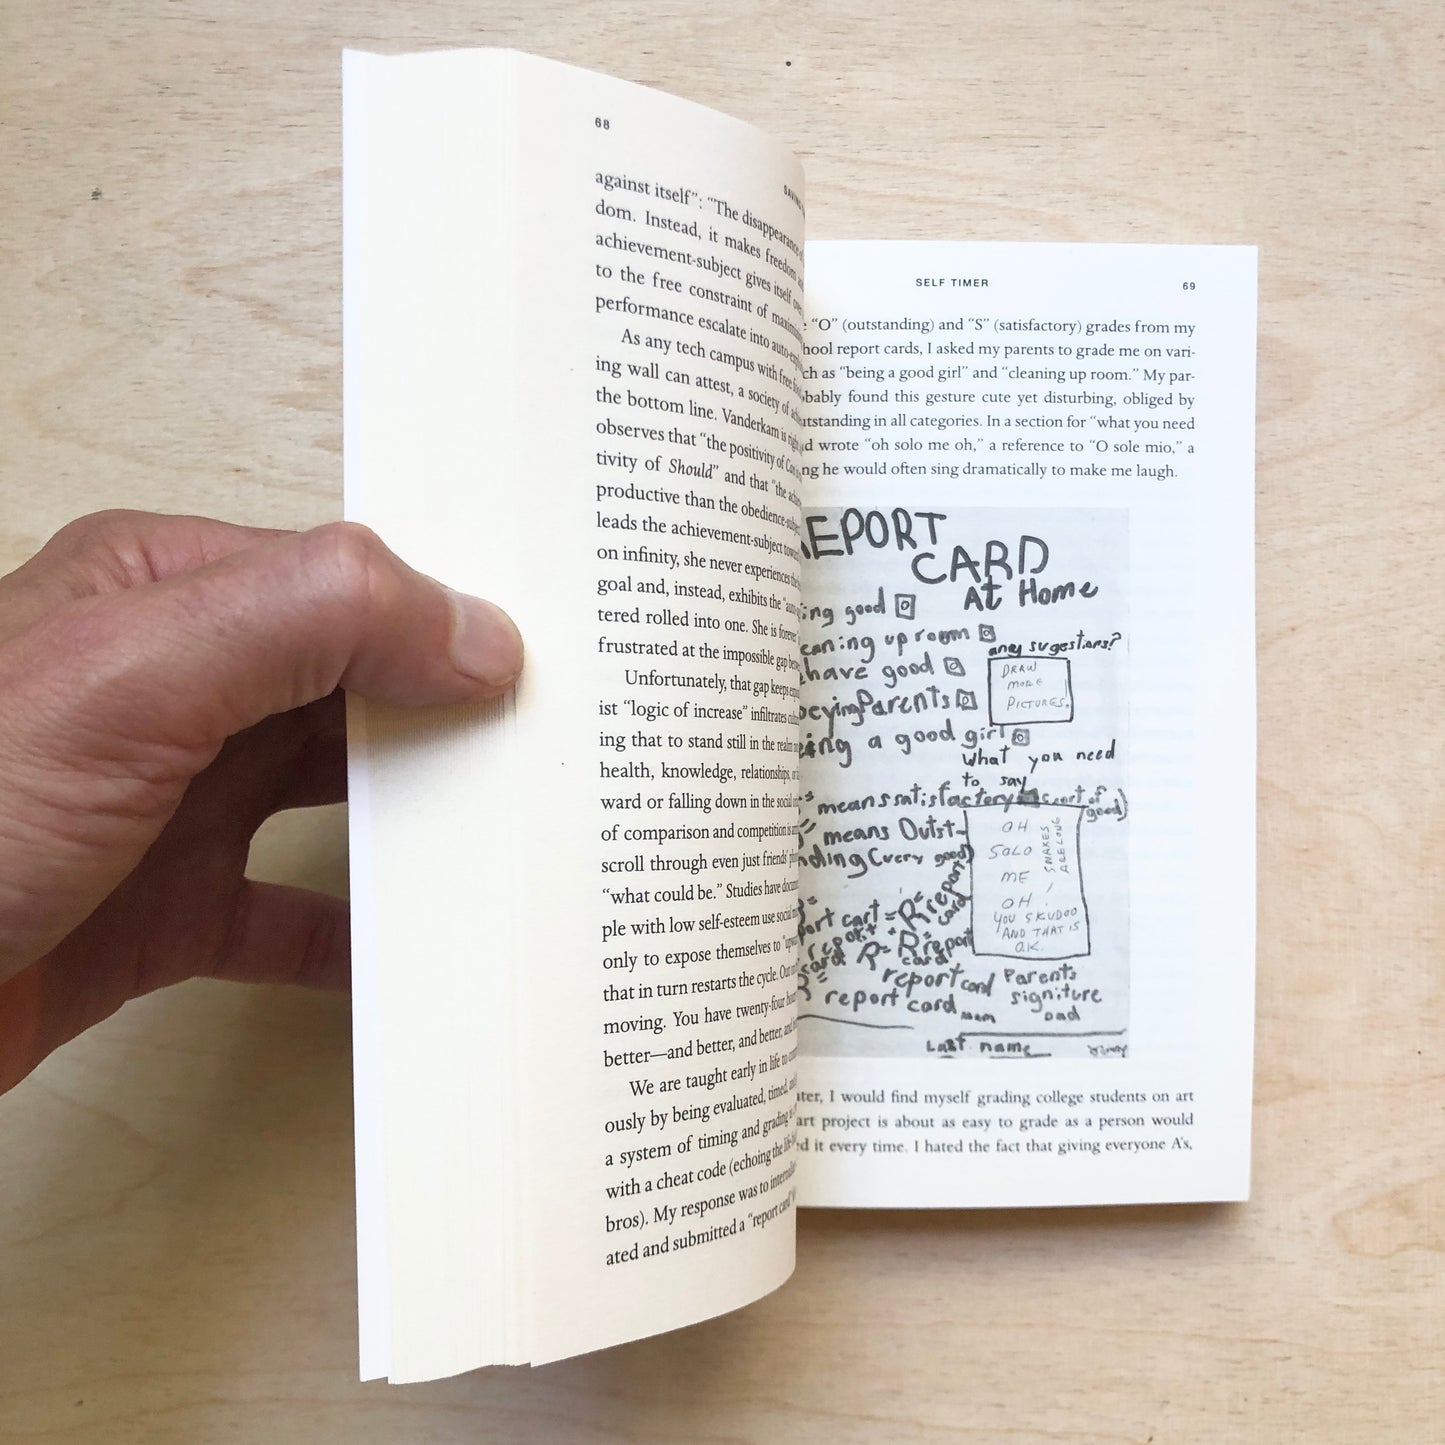 68
SAVING
against itself”: “The disappearance of
dom. Instead, it makes freedom and
achievement-subject gives itself over
to the free constraint of maximizing
performance escalate into auto-
As any tech campus with free
ing wall can attest, a society of
the bottom line. Vanderkam is right
observes that “the positivity of Can
tivity of Should” and that “the
productive than the obedience-
leads the achievement-subject
on infinity, she never experiences the
goal and, instead, exhibits the “auto
tered rolled into one. She is forever
frustrated at the impossible gap
Unfortunately, that gap keeps
ist “logic of increase” infiltrates
ing that to stand still in the realm
health, knowledge, relationships, or
ward or falling down in the social
of comparison and competition is
scroll through even just friends’
“what could be.” Studies have
ple with low self-esteem use social
only to expose themselves to
that in turn restarts the cycle. Our
moving. You have twenty-four
better—and better, and better, and
We are taught early in life to
ously by being evaluated, timed,
a system of timing and grading
with a cheat code (echoing the
bros). My response was to
ated and submitted a “report card”
SELF TIMER 69
“O” (outstanding) and “S” (satisfactory) grades from my
hool report cards, I asked my parents to grade me on vari-
ch as “being a good girl” and “cleaning up room.” My par-
bably found this gesture cute yet disturbing, obliged by
utstanding in all categories. In a section for “what you need
d wrote “oh solo me oh,” a reference to “O sole mio,” a
ng he would often sing dramatically to make me laugh.
EPORT
CARD
At Home
ing good O
eaning up room O
any sugestions?
have good O
DRAW
MORE
PICTURES.
beying Parents O
ing a good girl O
What you need
to say
means satisfactory (sort of
good)
means Outst-
nding (very good)
OH
SOLO
ME
OH!
SNAKES
ARE LONG
YOU SKUDOO
AND THAT IS
O.K.
port cart = R = report
card
report
card R = R report
card
report card
report card
Parents
signiture
mom
Dad
Last name
ater, I would find myself grading college students on art
art project is about as easy to grade as a person would
ed it every time. I hated the fact that giving everyone A’s,